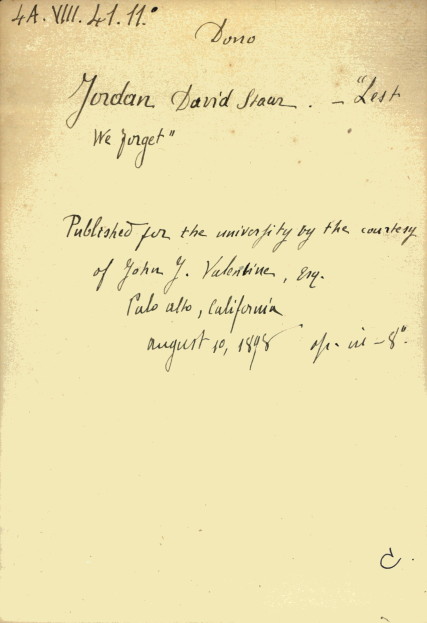 4A. VIII. 41. 11.°
Dono
Jordan David Staar. - "Lest
We forget"
Published for the university by the courtesy
of John J. Valentine, Esq.
Palo alto, California
august 10, 1898 op. in - 8°.
C.